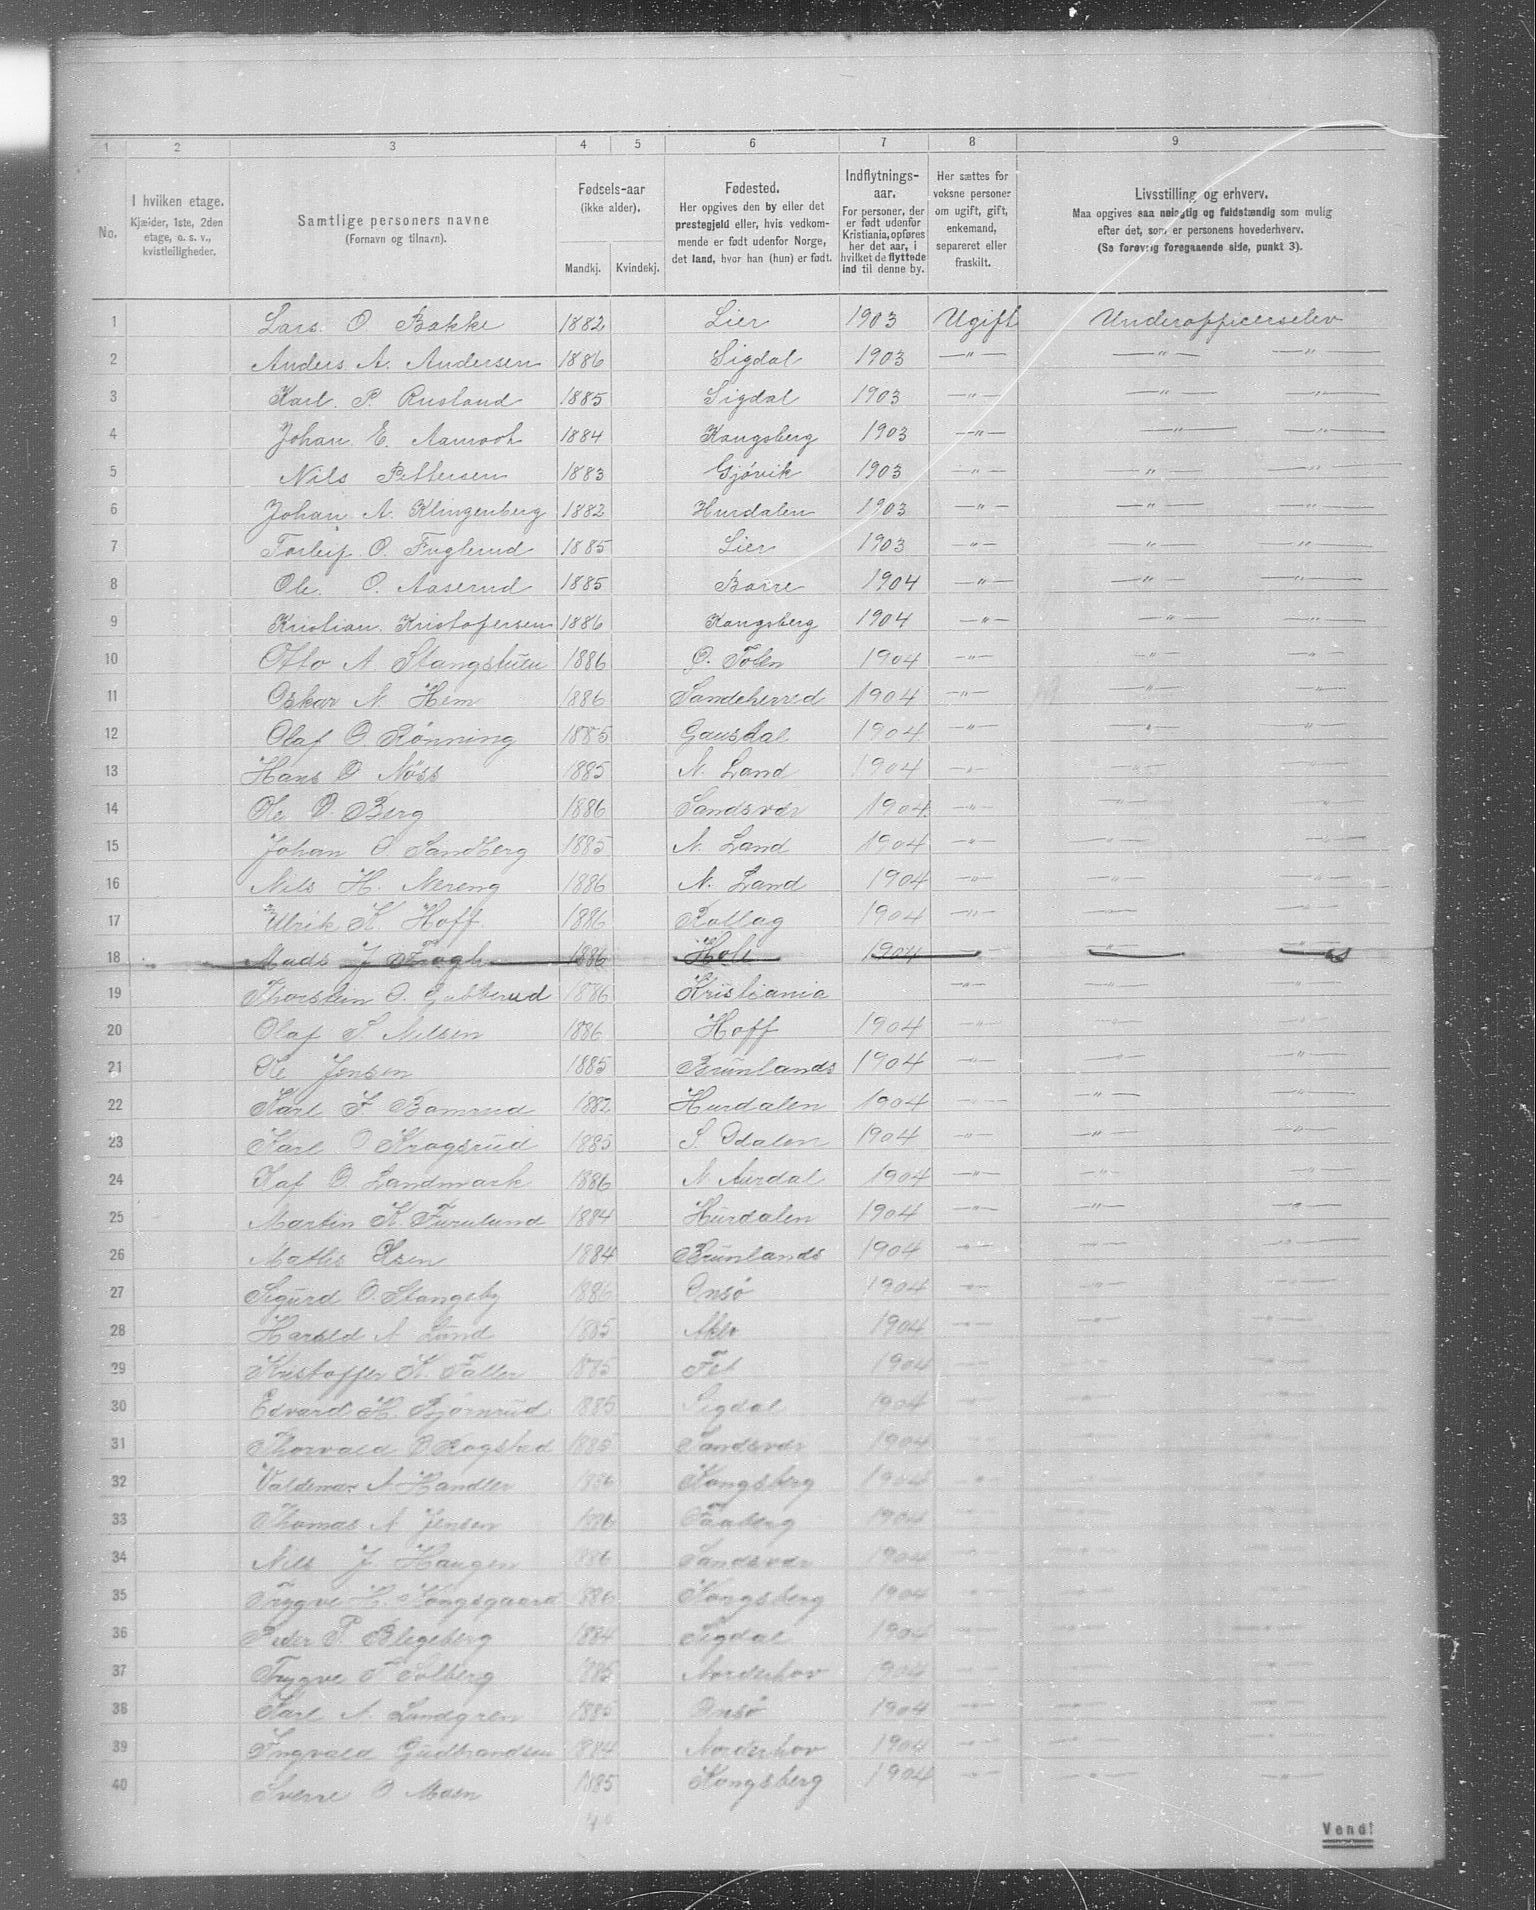 1 2 3 4 5 6 7 8 9
No. I hvilken etage. Kjælder, 1ste, 2den etage, o. s. v., kvistleiligheder. Samtlige personers navne (Fornavn og tilnavn). Fødsels-aar (ikke alder). Mandkj. Kvindekj. Fødested. Her opgives den by eller det prestegjeld eller, hvis vedkommende er født udenfor Norge, det land, hvor han (hun) er født. Indflytnings-aar. For personer, der er født udenfor Kristiania, opføres her det aar, i hvilket de flyttede ind til denne by. Her sættes for voksne personer om ugift, gift, enkemand, separeret eller fraskilt. Livsstilling og erhverv. Maa opgives saa nøiagtig og fuldstændig som mulig efter det, som er personens hovederhverv. (Se forøvrig foregaaende side, punkt 3).
1 Lars O Bakke 1882 Lier 1903 Ugift Underofficerselev
2 Anders A. Andersen 1886 Sigdal 1903 —"— —"— —"—
3 Karl P. Rusland 1885 Sigdal 1903 —"— —"— —"—
4 Johan E. Aamoot 1884 Kongsberg 1903 —"— —"— —"—
5 Nils Pettersen 1883 Gjøvik 1903 —"— —"— —"—
6 Johan A. Klingenberg 1882 Hurdalen 1903 —"— —"— —"—
7 Torleif O. Fuglerud 1885 Lier 1903 —"— —"— —"—
8 Ole O. Aaserud 1885 Borre 1904 —"— —"— —"—
9 Kristian Kristofersen 1886 Kongsberg 1904 —"— —"— —"—
10 Otto A Stangstuen 1886 Ø. Toten 1904 —"— —"— —"—
11 Oskar N. Hem 1886 Sandeherred 1904 —"— —"— —"—
12 Olaf O. Rønning 1885 Gausdal 1904 —"— —"— —"—
13 Hans O Nöss 1885 N. Land 1904 —"— —"— —"—
14 Ole O. Berg 1886 Sandsvær 1904 —"— —"— —"—
15 Johan O Sandberg 1885 N. Land 1904 —"— —"— —"—
16 Nils H. Nereng 1886 N. Land 1904 —"— —"— —"—
17 Ulrik K Hoff 1886 Rollag 1904 —"— —"— —"—
18 Mads J Frogh 1886 Hole 1904 — —"— —"—
19 Thorstein O. Gubberud 1886 Kristiania —"— —"— —"—
20 Olaf S Nilsen 1886 Hoff 1904 —"— —"— —"—
21 Ole Jensen 1885 Brunlands 1904 —"— —"— —"—
22 Karl F Bamrud 1882 Hurdalen 1904 —"— —"— —"—
23 Karl O Krogsrud 1885 S. Odalen 1904 —"— —"— —"—
24 Olaf O. Landmark 1886 N Aurdal 1904 —"— —"— —"—
25 Martin K. Furulund 1884 Hurdalen 1904 —"— —"— —"—
26 Mathis Olsen 1884 Brunlands 1904 —"— —"— —"—
27 Sigurd O. Stangeby 1886 Onsø 1904 —"— —"— —"—
28 Harald A Lund 1885 Aker 1904 —"— —"— —"—
29 Kristoffer K. Faller 1885 Fet 1904 —"— —"— —"—
30 Edvard H. Bjørnrud 1885 Sigdal 1904 —"— —"— —"—
31 Thorvald O Rogstad 1885 Sandsvær 1904 —"— —"— —"—
32 Valdemar A Handler 1886 Kongsberg 1904 —"— —"— —"—
33 Thomas A Jensen 1886 Faaberg 1904 —"— —"— —"—
34 Nils J Haugen 1886 Sandsvær 1904 —"— —"— —"—
35 Trygve H. Kongsgaard 1886 Kongsberg 1904 —"— —"— —"—
36 Peder P. Blegeberg 1884 Sigdal 1904 —"— —"— —"—
37 Trygve Solberg 1885 Norderhov 1904 —"— —"— —"—
38 Karl A. Landgren 1885 Onsø 1904 —"— —"— —"—
39 Ingvald Gudbrandsen 1884 Norderhov 1904 —"— —"— —"—
40 Sverre O Moen 1885 Kongsberg 1904 —"— —"— —"—
Vend!